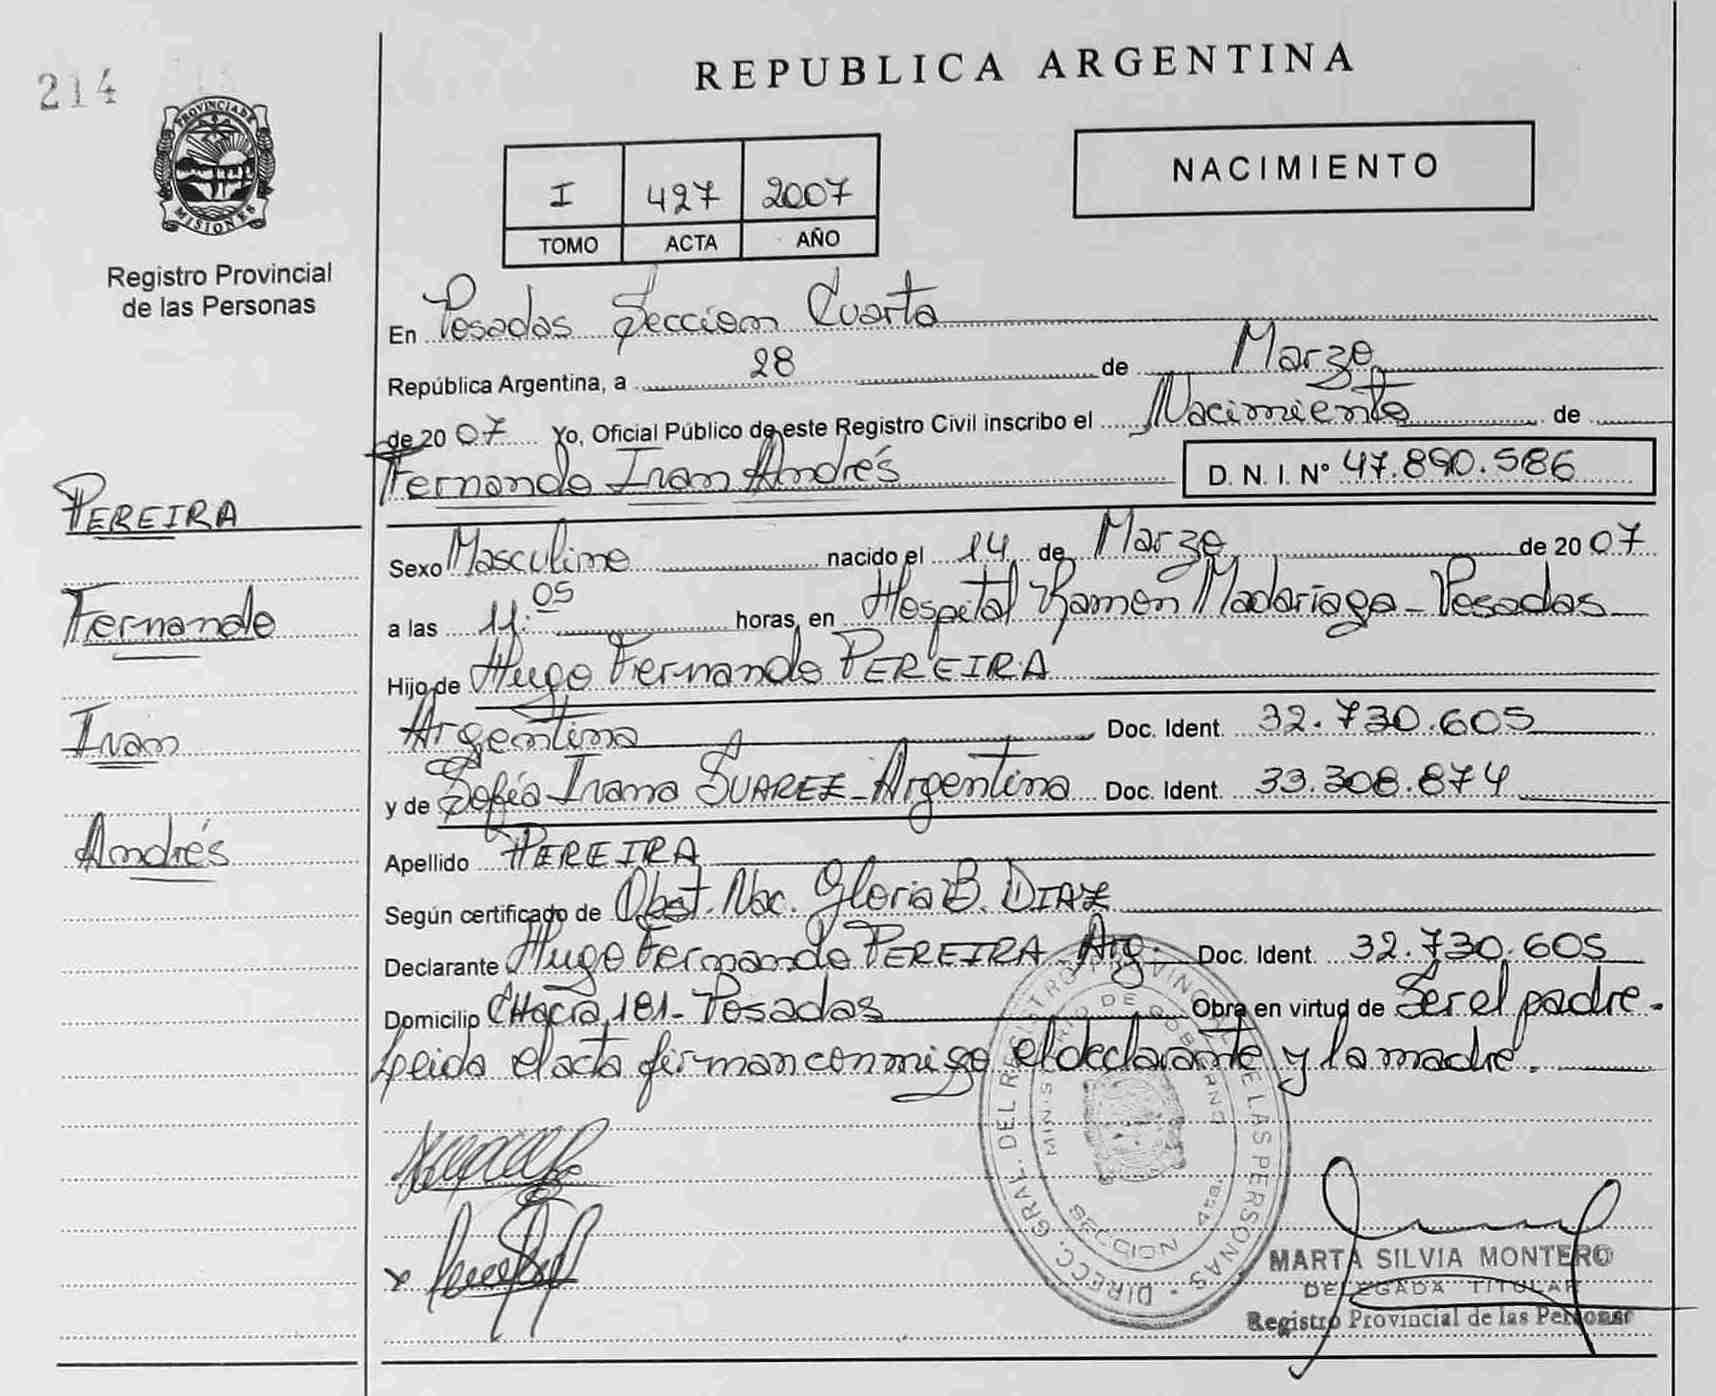 214
REPUBLICA ARGENTINA
PROVINCIA DE
MISIONES
Registro Provincial
de las Personas
I 427 2007
TOMO ACTA AÑO
NACIMIENTO
En Posadas Sección Cuarta
República Argentina, a 28 de Marzo
de 2007 Yo, Oficial Público de este Registro Civil inscribo el Nacimiento de
Fernando Ivan Andrés D. N. I. Nº 47.890.586
PEREIRA
Fernando
Ivan
Andrés
Sexo Masculino nacido el 14 de Marzo de 2007
a las 11:05 horas, en Hospital Ramon Madariaga - Posadas
Hijo de Hugo Fernando PEREIRA
Argentina Doc. Ident. 32.730.605
y de Sofía Ivana SUAREZ - Argentina Doc. Ident. 33.308.874
Apellido PEREIRA
Según certificado de Obst. Nac. Gloria B. DIAZ
Declarante Hugo Fernando PEREIRA - Arg. Doc. Ident. 32.730.605
Domicilio Chacra 181 - Posadas Obra en virtud de Ser el padre.
Leida el acta firman conmigo el declarante y la madre.
DIRECC. GRAL. DEL REGISTRO PROVINCIAL DE LAS PERSONAS
MINISTERIO DE GOBIERNO
SECCION 4ta.
MARTA SILVIA MONTERO
DELEGADA TITULAR
Registro Provincial de las Personas